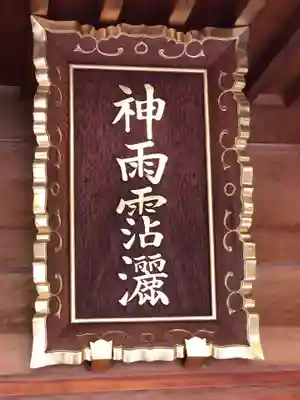 神雨霑灑